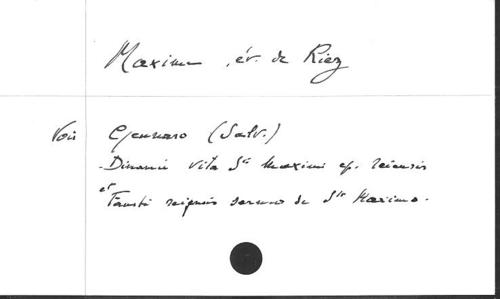 Maxime, év. de Riez
Voir Gennaro (Salv.)
- Dinamii vita Sti Maximi ep. reiensis
et Fausti reiensis sermo de Sto Maximo.